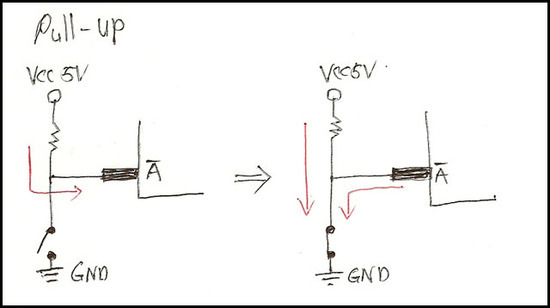 Pull-up
VCC 5V
A̅
GND
VCC 5V
A̅
GND